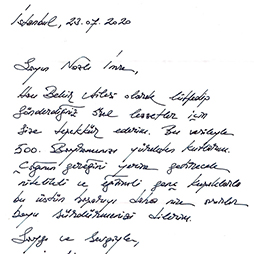 İstanbul, 23.07.2020
Sayın Nazlı İmre,
Hacı Bekir Ailesi olarak lütfedip
gönderdiğiniz özel lezzetler için
size teşekkür ederim. Bu vesileyle
Bayramınızı yürekten kutlarım.
Çağın gereğini yerine getirecek
nitelikli ve eğitimli genç kuşaklarla
bu üstün başarıyı daha nice asırlar
boyu sürdürmenizi dilerim.
Saygı ve Sevgiyle,